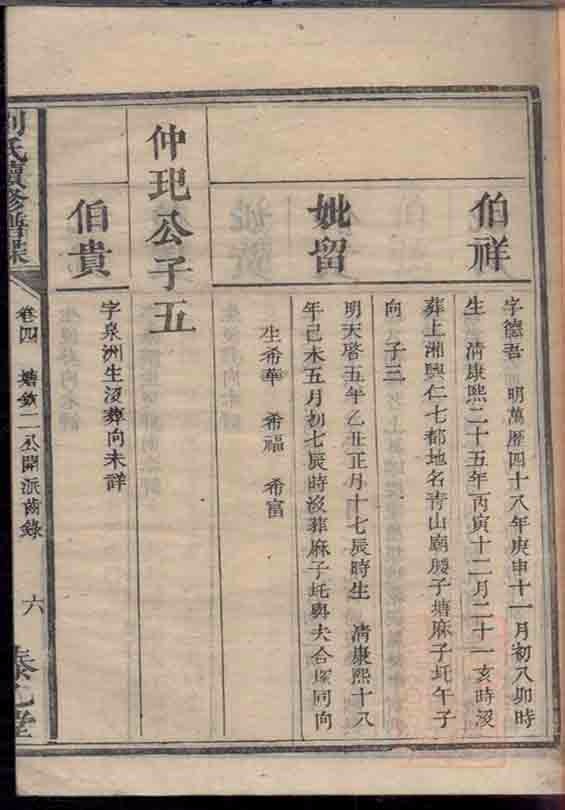 伯祥
字德吾　明萬歷四十八年庚申十一月初八卯時
生　清康熙二十五年丙寅十二月二十一亥時沒
葬上湘興仁七都地名青山廟腰子塘麻子圫午子
向　子三
妣留
明天啓五年乙丑正月十七辰時生　清康熙十八
年己未五月初七辰時沒葬麻子圫與夫合塚同向
生希華　希福　希富
仲玘公子五
伯貴
字泉洲生沒葬向未詳
劉氏續修譜牒
卷四　塘欽二公開派齒錄
六